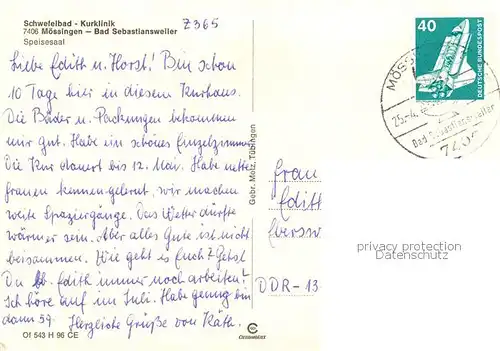 Schwefelbad - Kurklinik
7406 Mössingen — Bad Sebastiansweiler
Speisesaal
Z365
Liebe Edith u. Horst! Bin schon
10 Tage hier in diesem Kurhaus.
Die Bäder u. Packungen bekommen
mir gut. Habe ein schönes Einzelzimmer.
Die Kur dauert bis 12. Mai. Habe nette
Frauen kennengelernt, wir machen
weite Spaziergänge. Das Wetter dürfte
wärmer sein. Aber alles Gute ist nicht
beisammen. Wie geht es Euch? Gehst
Du lb. Edith immer noch arbeiten?
Ich höre auf im Juli. Habe genug bin
dann 59. Herzliche Grüße von Käth.
Of 543 H 96 CE
Gebr. Metz, Tübingen
CEKUMBERS
40
DEUTSCHE BUNDESPOST
MÖSS
25.-4.
Bad Sebastiansweiler
740
Frau
Edit
Ebersw
DDR-13
privacy protection
Datenschutz